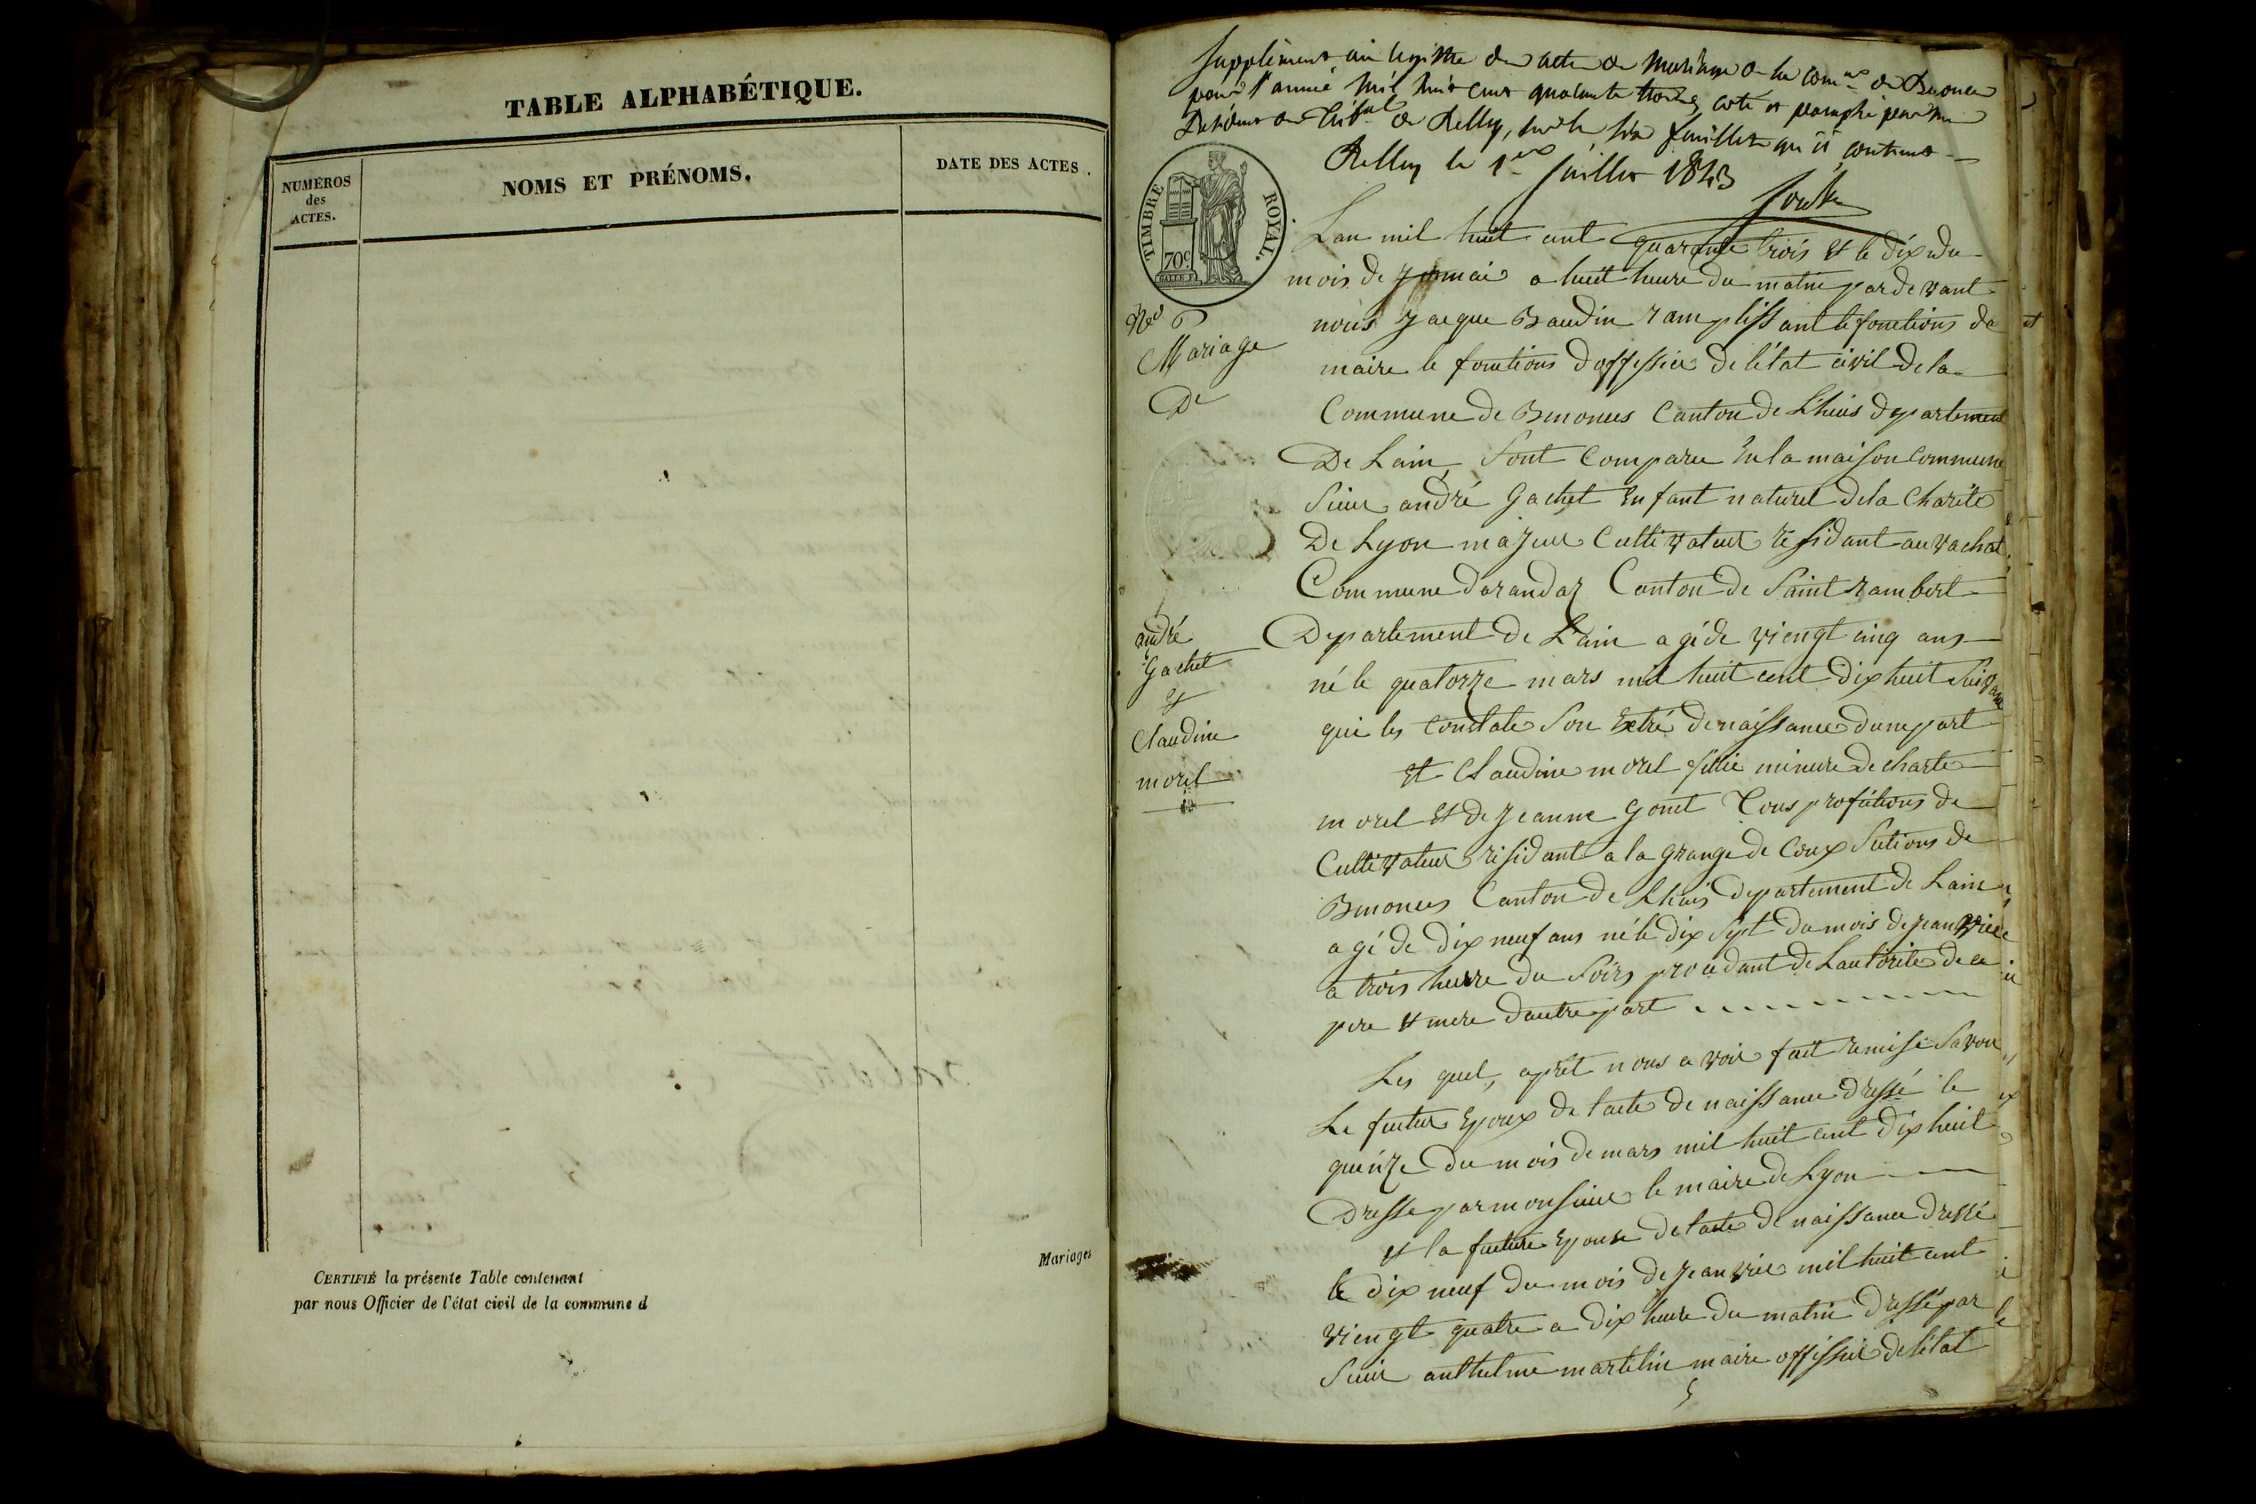 TABLE ALPHABÉTIQUE.
NUMÉROS
des
ACTES.
NOMS ET PRÉNOMS.
DATE DES ACTES.
Mariages
CERTIFIÉ la présente Table contenant
par nous Officier de l'état civil de la commune d
Supplément au registre des actes de Mariage de la comne de
pour l'année mil huit cent quarante trois, coté et paraphé par nous
Président du Tribal de Belley, sur les six feuillets qu'il contient
Belley le 1er Juillet 1843
TIMBRE ROYAL.
70c
No 6
Mariage
De
andré
Gachet
et
Claudine
morel
Lan mil huit cent quarante trois et le dix du
mois de a huit heure du matin par de vant
nous Jacque Baudin ramplissant le fonctions da
maire le fonctions doffessier de létat civil de la
Commune de Canton de Lhuis departement
De Lain, Sont Comparu En la maison commune
Sieur andré Gachet Enfant naturel dela Charité
De Lyon majeur Cultivateur résidant au vachat
Commune darandas Canton de Saint rambert
Departement de Lain agé de viengt cinq ans
né le quatorze mars mil huit cent dix huit Suivant
que les constate Son Extré de naissance dune part
Et Claudine morel fillie mineure de charle
morel Et de Jeanne Gonet Tous profitions de
Cultivateur résidant a la Grange de Coux Sections de
Canton de Lhuis departement de Lain
agé de dix neuf ans né le dix Sept du mois de Janvier
a trois heure du Soirs procedant de Lautorite de ce
pere et mere dautre part
Les quel, apret nous avoir fait remise Savoir
Le futur Epoux de lacte de naissance dressé le
quinze du mois de mars mil huit cent dix huit
Dresse par monsieur le maire de Lyon
et la future Epouse de lacte de naissance dressé
le dix neuf du mois de Jeanvié mil huit cent
viengt quatre a dix heure du matin dressé par
Sieur anthelme martelin maire offissié de létat